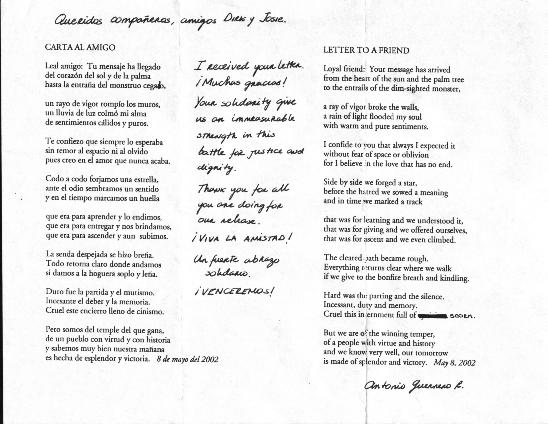 Queridos compañeros, amigos Dirk y Josie.
CARTA AL AMIGO
Leal amigo: Tu mensaje ha llegado
del corazón del sol y de la palma
hasta la entraña del monstruo cegado,
un rayo de vigor rompío los muros,
un lluvia de luz colmó mi alma
de sentimientos cálidos y puros.
Te confiezo que siempre lo esperaba
sin temor al espacio ni al olvido
pues creo en el amor que nunca acaba.
Codo a codo forjamos una estrella,
ante el odio sembramos un sentido
y en el tiempo marcamos un huella
que era para aprender y lo endimos,
que era para entregar y nos brindamos,
que era para ascender y aun subimos.
La senda despejada se hizo breña.
Todo retorna claro donde andamos
si damos a la hoguera soplo y leña.
Duro fue la partida y el mutismo.
Incesante el deber y la memoria.
Cruel este encierro lleno de cinismo.
Pero somos del temple del que gana,
de un pueblo con virtud y con historia
y sabemos muy bien nuestra mañana
es hecha de esplendor y victoria. 8 de mayo del 2002
I received your letter.
¡Muchas gracias!
Your solidarity give
us an immeasurable
strength in this
battle for justice and
dignity.
Thank you for all
you are doing for
our release.
¡VIVA LA AMISTAD!
Un fuerte abrazo
solidario.
¡VENCEREMOS!
LETTER TO A FRIEND
Loyal friend: Your message has arrived
from the heart of the sun and the palm tree
to the entrails of the dim-sighted monster,
a ray of vigor broke the walls,
a rain of light flooded my soul
with warm and pure sentiments.
I confide to you that always I expected it
without fear of space or oblivion
for I believe in the love that has no end.
Side by side we forged a star,
before the hatred we sowed a meaning
and in time we marked a track
that was for learning and we understood it,
that was for giving and we offered ourselves,
that was for ascent and we even climbed.
The cleared path became rough.
Everything returns clear where we walk
if we give to the bonfire breath and kindling.
Hard was the parting and the silence.
Incessant, duty and memory.
Cruel this internment full of
But we are of the winning temper,
of a people with virtue and history
and we know very well, our tomorrow
is made of splendor and victory. May 8, 2002
Antonio Guerrero R.